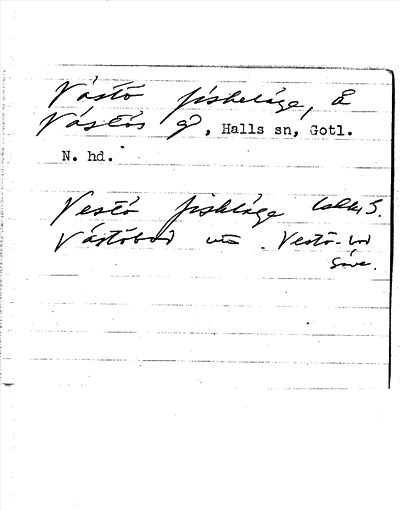 Västö fiskeläge, å
Västös g, Halls sn, Gotl.
N. hd.
Vestö fiskläge
Västöbod Vestö-bod
Säve.